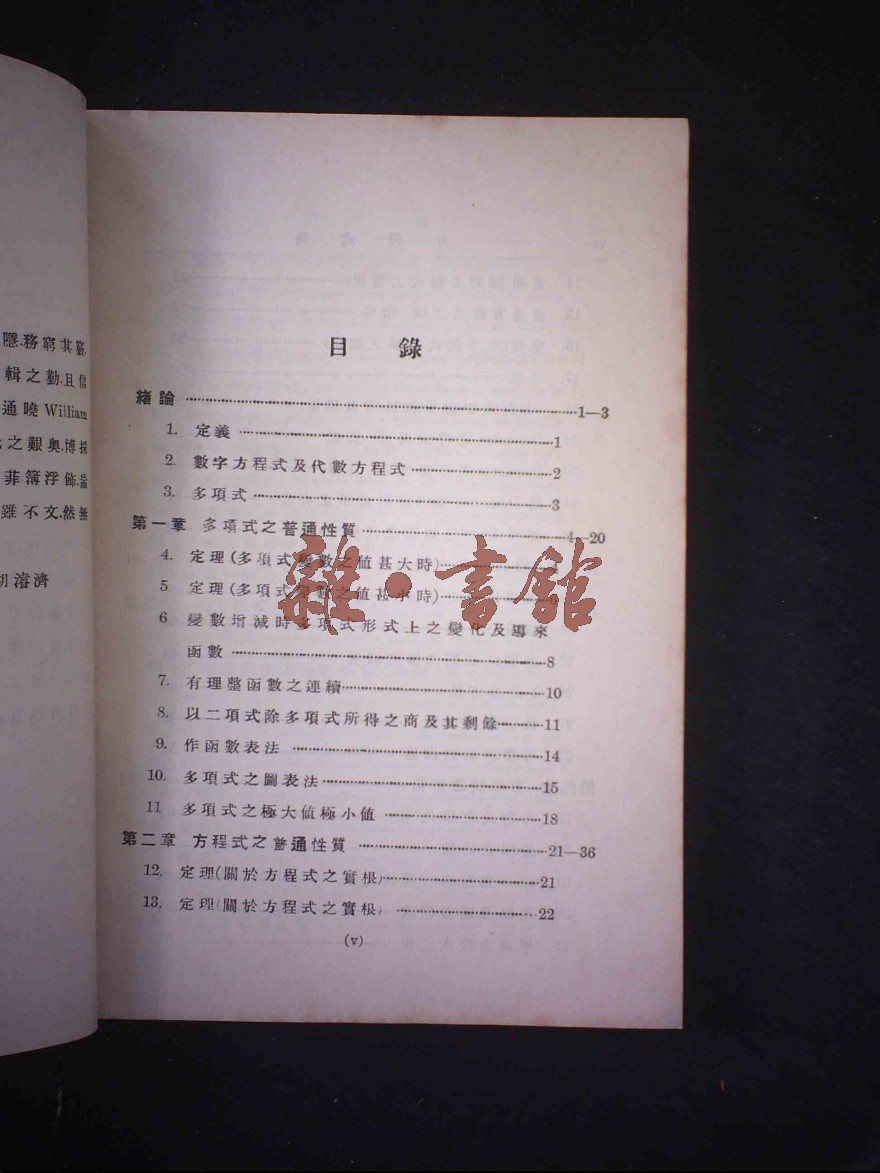 隱.務窮其窾.
輯之勤.且信
通曉William
之艱奧.博採
菲簿浮飾.
雖不文.然無
胡濬濟
目錄
緒論 1—3
1. 定義 1
2. 數字方程式及代數方程式 2
3. 多項式 3
第一章 多項式之普通性質 4—20
4. 定理(多項式變數之値甚大時)
5 定理(多項式變數之値甚小時)
6 變數增減時多項式形式上之變化及導來
函數 8
7. 有理整函數之連續 10
8. 以二項式除多項式所得之商及其剩餘 11
9. 作函數表法 14
10. 多項式之圖表法 15
11 多項式之極大値極小値 18
第二章 方程式之普通性質 21—36
12. 定理(關於方程式之實根) 21
13. 定理(關於方程式之實根) 22
(v)
雜·書館